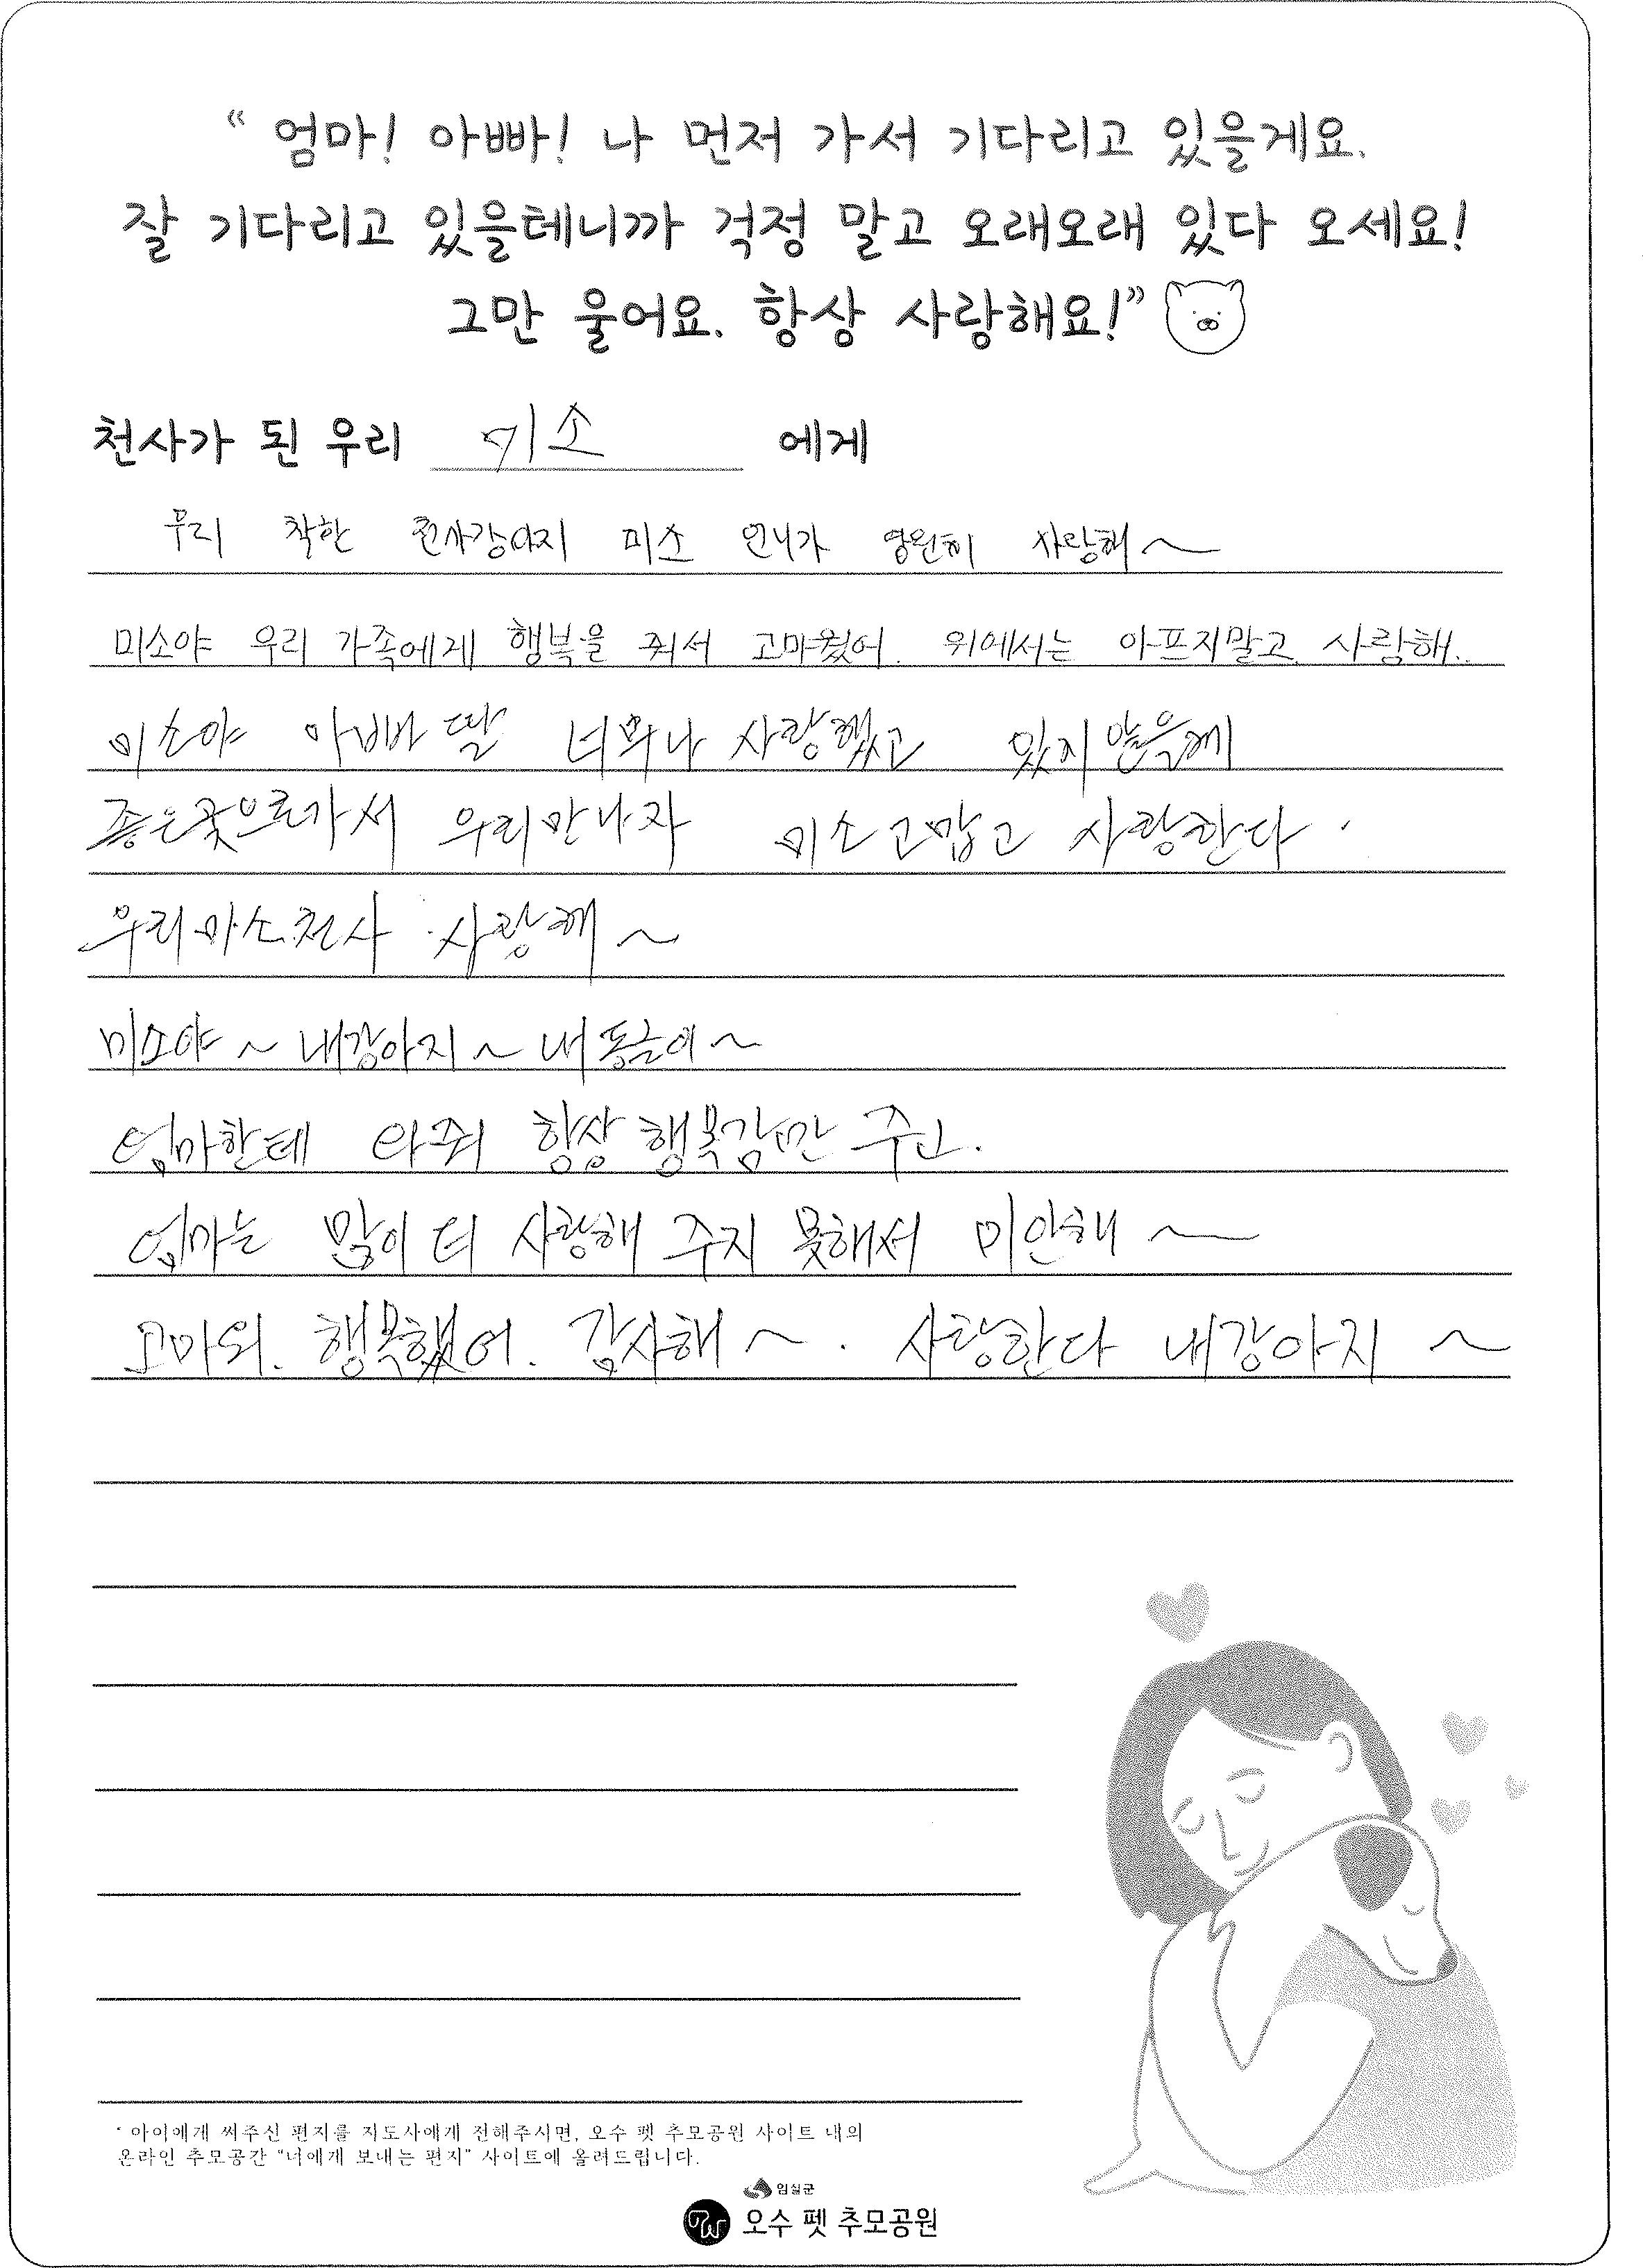 “ 엄마! 아빠! 나 먼저 가서 기다리고 있을게요.
잘 기다리고 있을테니까 걱정 말고 오래오래 있다 오세요!
그만 울어요. 항상 사랑해요!”
천사가 된 우리 미소 에게
우리 착한 천사강아지 미소 언니가 영원히 사랑해~
미소야 우리 가족에게 행복을 줘서 고마웠어. 위에서는 아프지말고 사랑해..
미소야 아빠 딸 너무나 사랑했고 잊지 않을께
좋은곳으로가서 우리만나자 미소 고맙고 사랑한다.
우리미소천사 사랑해~
미소야~ 내강아지~ 내
엄마한테 와줘 항상 행복감만 주고.
엄마는 많이 더 사랑해 주지 못해서 미안해~
고마워. 행복했어. 감사해~. 사랑한다 내강아지~
* 아이에게 써주신 편지를 지도사에게 전해주시면, 오수 펫 추모공원 사이트 내의
온라인 추모공간 “너에게 보내는 편지” 사이트에 올려드립니다.
임실군
오수 펫 추모공원